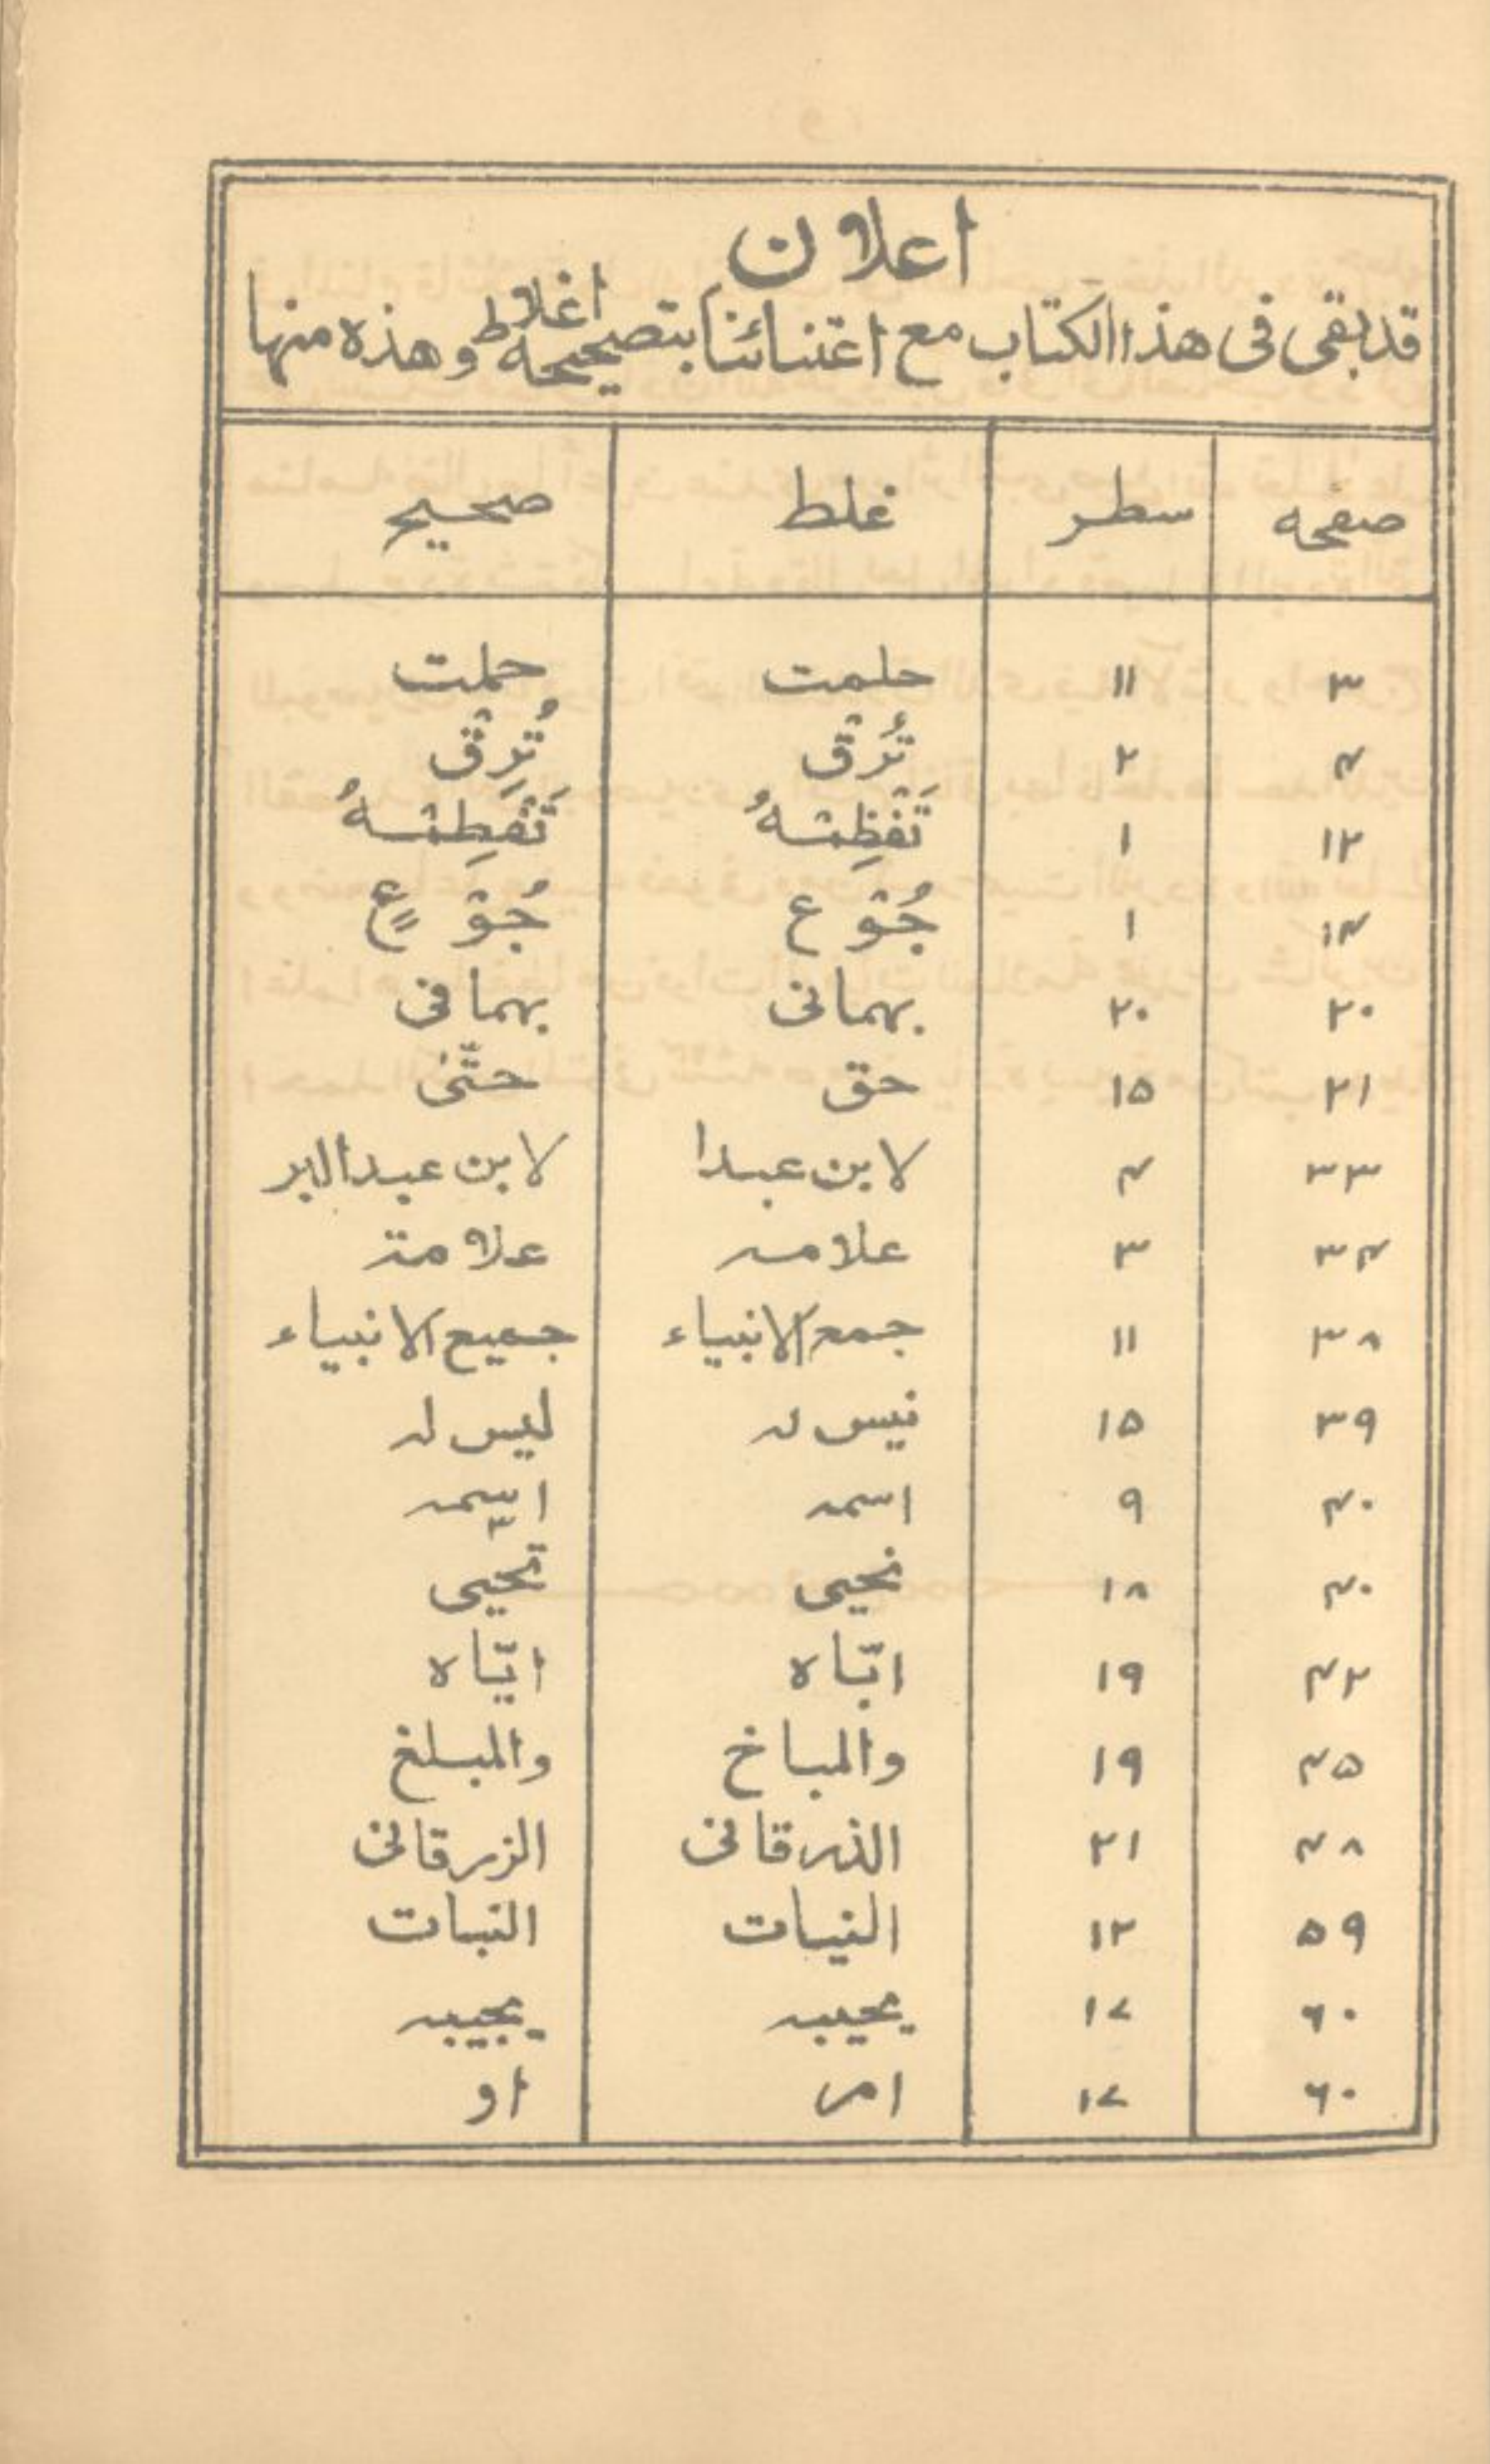 اعلان
قد بقى فى هذا الكتاب مع اعتنائنا بتصحيحه اغلاط وهذه منها
صفحه سطر غلط صحيح
٣ ١١ حلمت حملت
٤ ٢ تُرْق تُرِقْ
١٢ ١ تَفْظِمْهُ تَفْطِمْهُ
١٤ ١ جُوْع جُوْعٍ
٢٠ ٢٠ بهمانى بهما فى
٢١ ١٥ حق حتّى
٣٣ ٤ لابن عبدا لابن عبدالبر
٣٤ ٣ علامه علامة
٣٨ ١١ جمع الانبياء جميع الانبياء
٣٩ ١٥ نيس له ليس له
٤٠ ٩ اسمه اسمه
٤٠ ١٨ نحيى تحيى
٤٢ ١٩ ابّاه ايّاه
٤٥ ١٩ والمباخ والمبلغ
٤٨ ٢١ الذرقانى الزرقانى
٥٩ ١٢ النيات النبات
٦٠ ١٧ يحيبه يجيبه
٦٠ ١٧ امر او